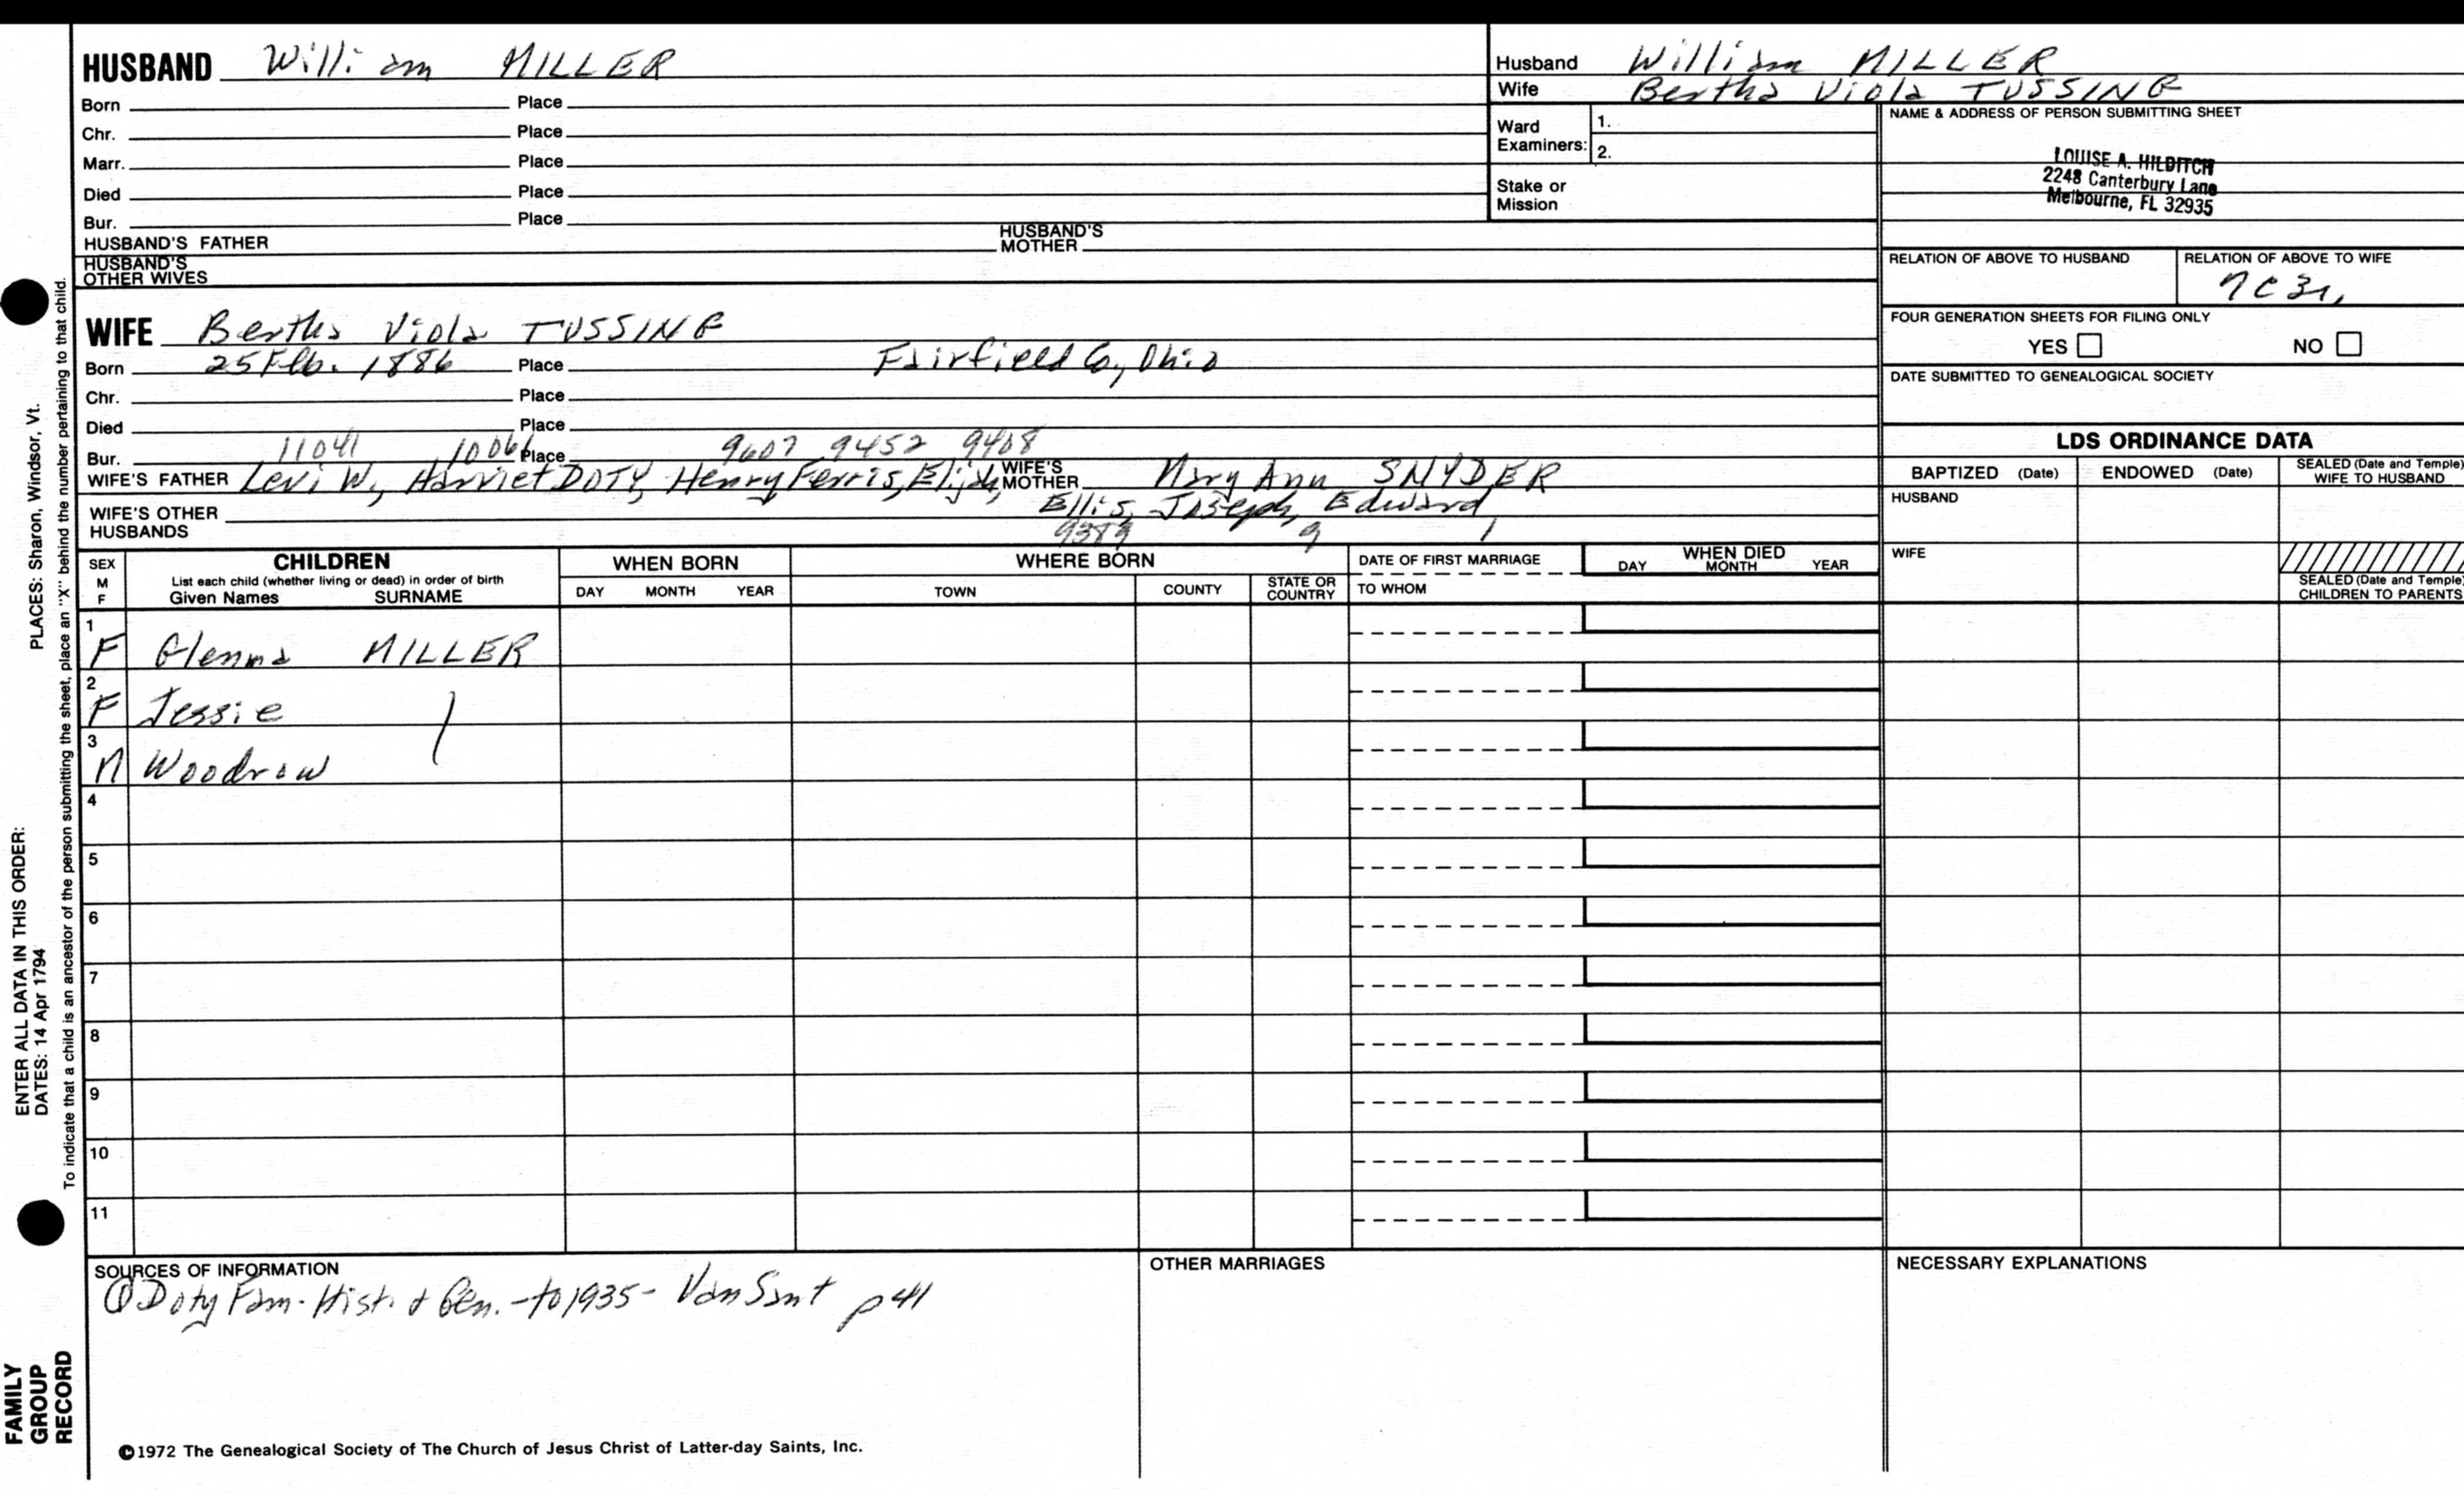 HUSBAND William MILLER
Born Place
Chr. Place
Marr. Place
Died Place
Bur. Place
HUSBAND'S FATHER HUSBAND'S MOTHER
HUSBAND'S OTHER WIVES
Husband William MILLER
Wife Bertha Viola TUSSING
Ward Examiners: 1.
2.
Stake or Mission
NAME & ADDRESS OF PERSON SUBMITTING SHEET
LOUISE A. HILDITCH
2248 Canterbury Lane
Melbourne, FL 32935
RELATION OF ABOVE TO HUSBAND RELATION OF ABOVE TO WIFE
FOUR GENERATION SHEETS FOR FILING ONLY
YES NO
DATE SUBMITTED TO GENEALOGICAL SOCIETY
WIFE Bertha Viola TUSSING
Born 25 Feb. 1886 Place Fairfield Co, Ohio
Chr. Place
Died Place
11041 10061 9607 9452 9408
Bur. Place
WIFE'S FATHER Levi W, Harriet DOTY, Henry Ferris, Elijah, WIFE'S MOTHER Mary Ann SNYDER
Ellis, Joseph, Edward,
WIFE'S OTHER HUSBANDS
9389 9 1
LDS ORDINANCE DATA
BAPTIZED (Date) ENDOWED (Date) SEALED (Date and Temple) WIFE TO HUSBAND
HUSBAND
WIFE
SEALED (Date and Temple) CHILDREN TO PARENTS
SEX M F
CHILDREN
List each child (whether living or dead) in order of birth
Given Names SURNAME
WHEN BORN
DAY MONTH YEAR
WHERE BORN
TOWN COUNTY STATE OR COUNTRY
DATE OF FIRST MARRIAGE
TO WHOM
WHEN DIED
DAY MONTH YEAR
1
F Glenna MILLER
2
F Jessie
3
M Woodrow
4
5
6
7
8
9
10
11
SOURCES OF INFORMATION
① Doty Fam. Hist. & Gen. - to 1935 - Van Sant p 41
OTHER MARRIAGES
NECESSARY EXPLANATIONS
©1972 The Genealogical Society of The Church of Jesus Christ of Latter-day Saints, Inc.
FAMILY GROUP RECORD
ENTER ALL DATA IN THIS ORDER:
DATES: 14 Apr 1794 PLACES: Sharon, Windsor, Vt.
To indicate that a child is an ancestor of the person submitting the sheet, place an "X" behind the number pertaining to that child.